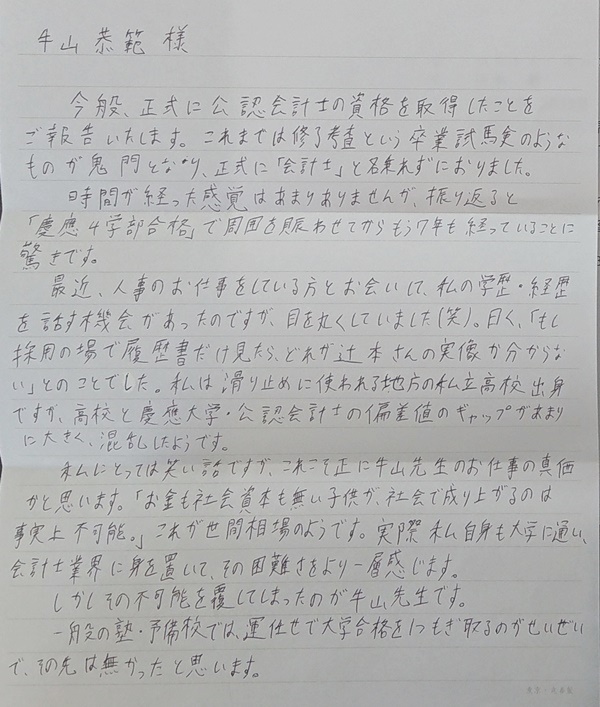 牛山 恭範 様
今般、正式に公認会計士の資格を取得したことを
ご報告いたします。これまでは修了考査という卒業試験のような
ものが鬼門となり、正式に「会計士」と名乗れずにおりました。
時間が経った感覚はあまりありませんが、振り返ると
「慶應4学部合格」で周囲を賑わせてからもう7年も経っていることに
驚きです。
最近、人事のお仕事をしている方とお会いして、私の学歴・経歴
を話す機会があったのですが、目を丸くしていました(笑)。曰く、「もし
採用の場で履歴書だけ見たら、どれが辻本さんの実像か分からな
い」とのことでした。私は滑り止めに使われる地方の私立高校出身
ですが、高校と慶應大学・公認会計士の偏差値のギャップがあまり
に大きく、混乱したようです。
私にとっては笑い話ですが、これこそ正に牛山先生のお仕事の真価
かと思います。「お金も社会資本も無い子供が、社会で成り上がるのは
事実上不可能。」これが世間相場のようです。実際私自身も大学に通い、
会計士業界に身を置いて、その困難さをより一層感じます。
しかしその不可能を覆してしまったのが牛山先生です。
一般の塾・予備校では、運任せで大学合格を1つもぎ取るのがせいぜい
で、その先は無かったと思います。